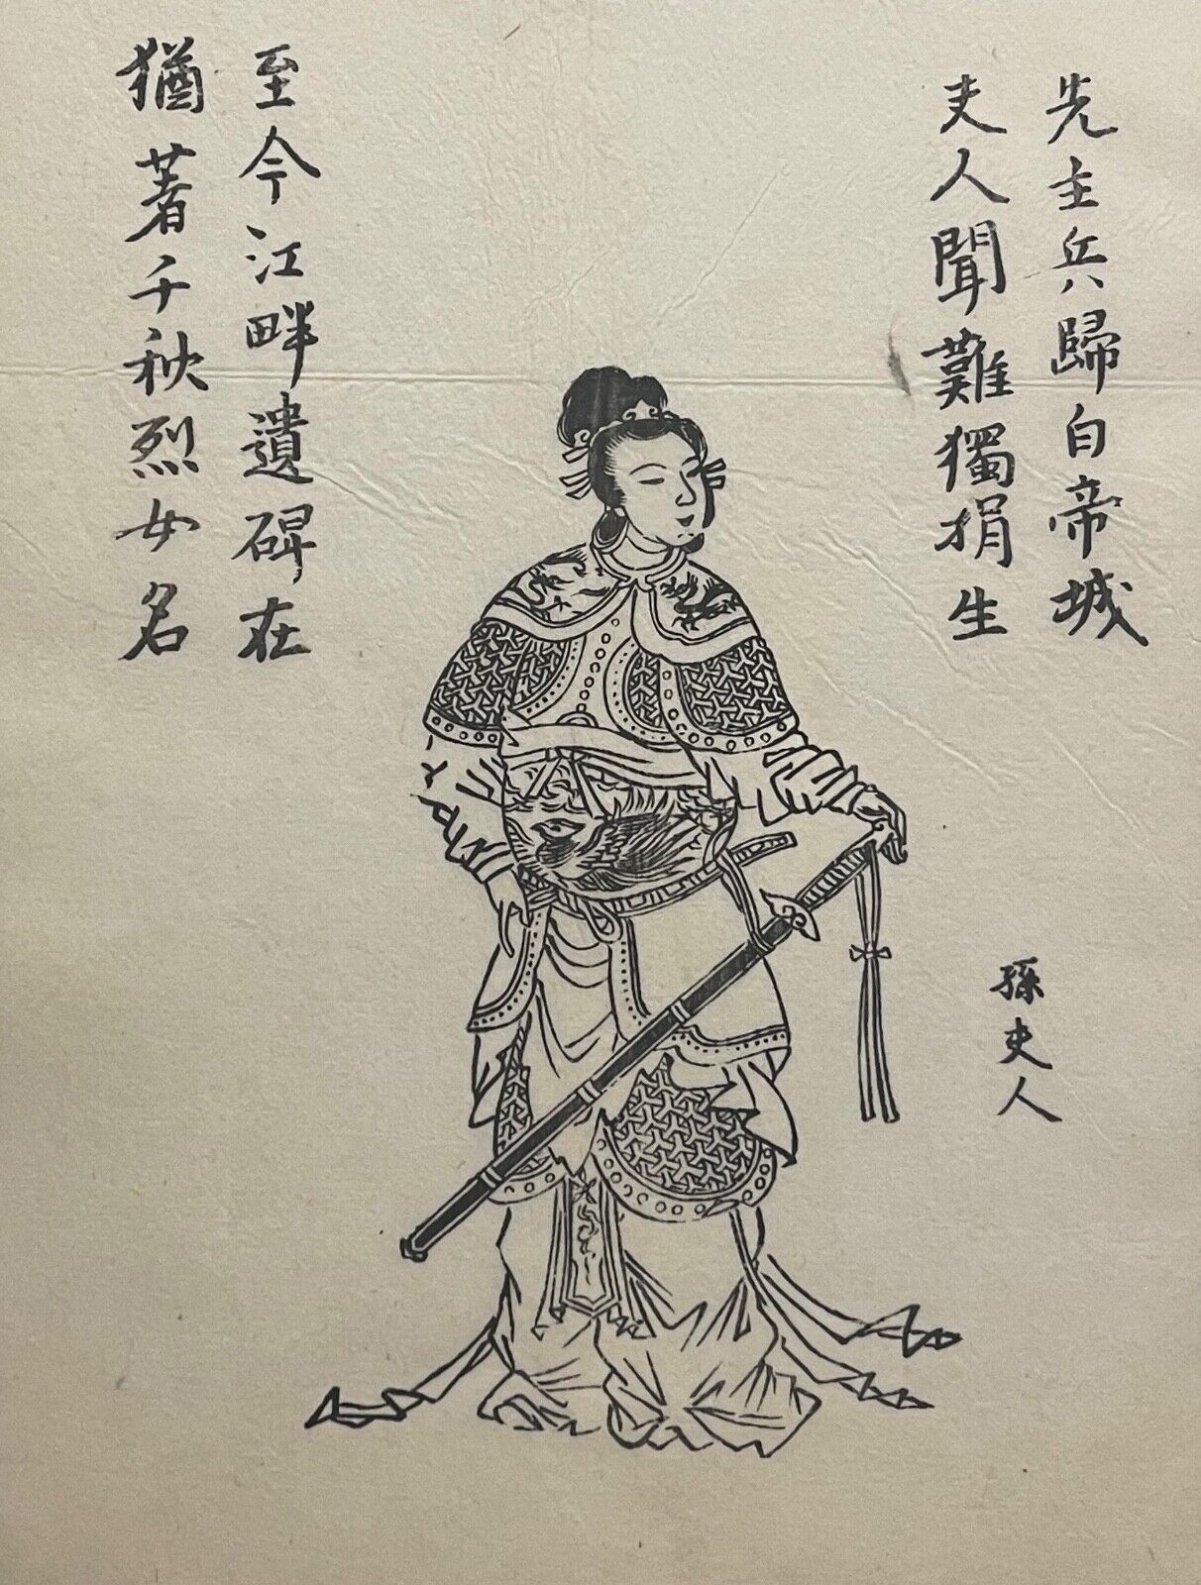 先主兵歸白帝城
夫人聞難獨捐生
至今江畔遺碑在
猶著千秋烈女名
孫夫人